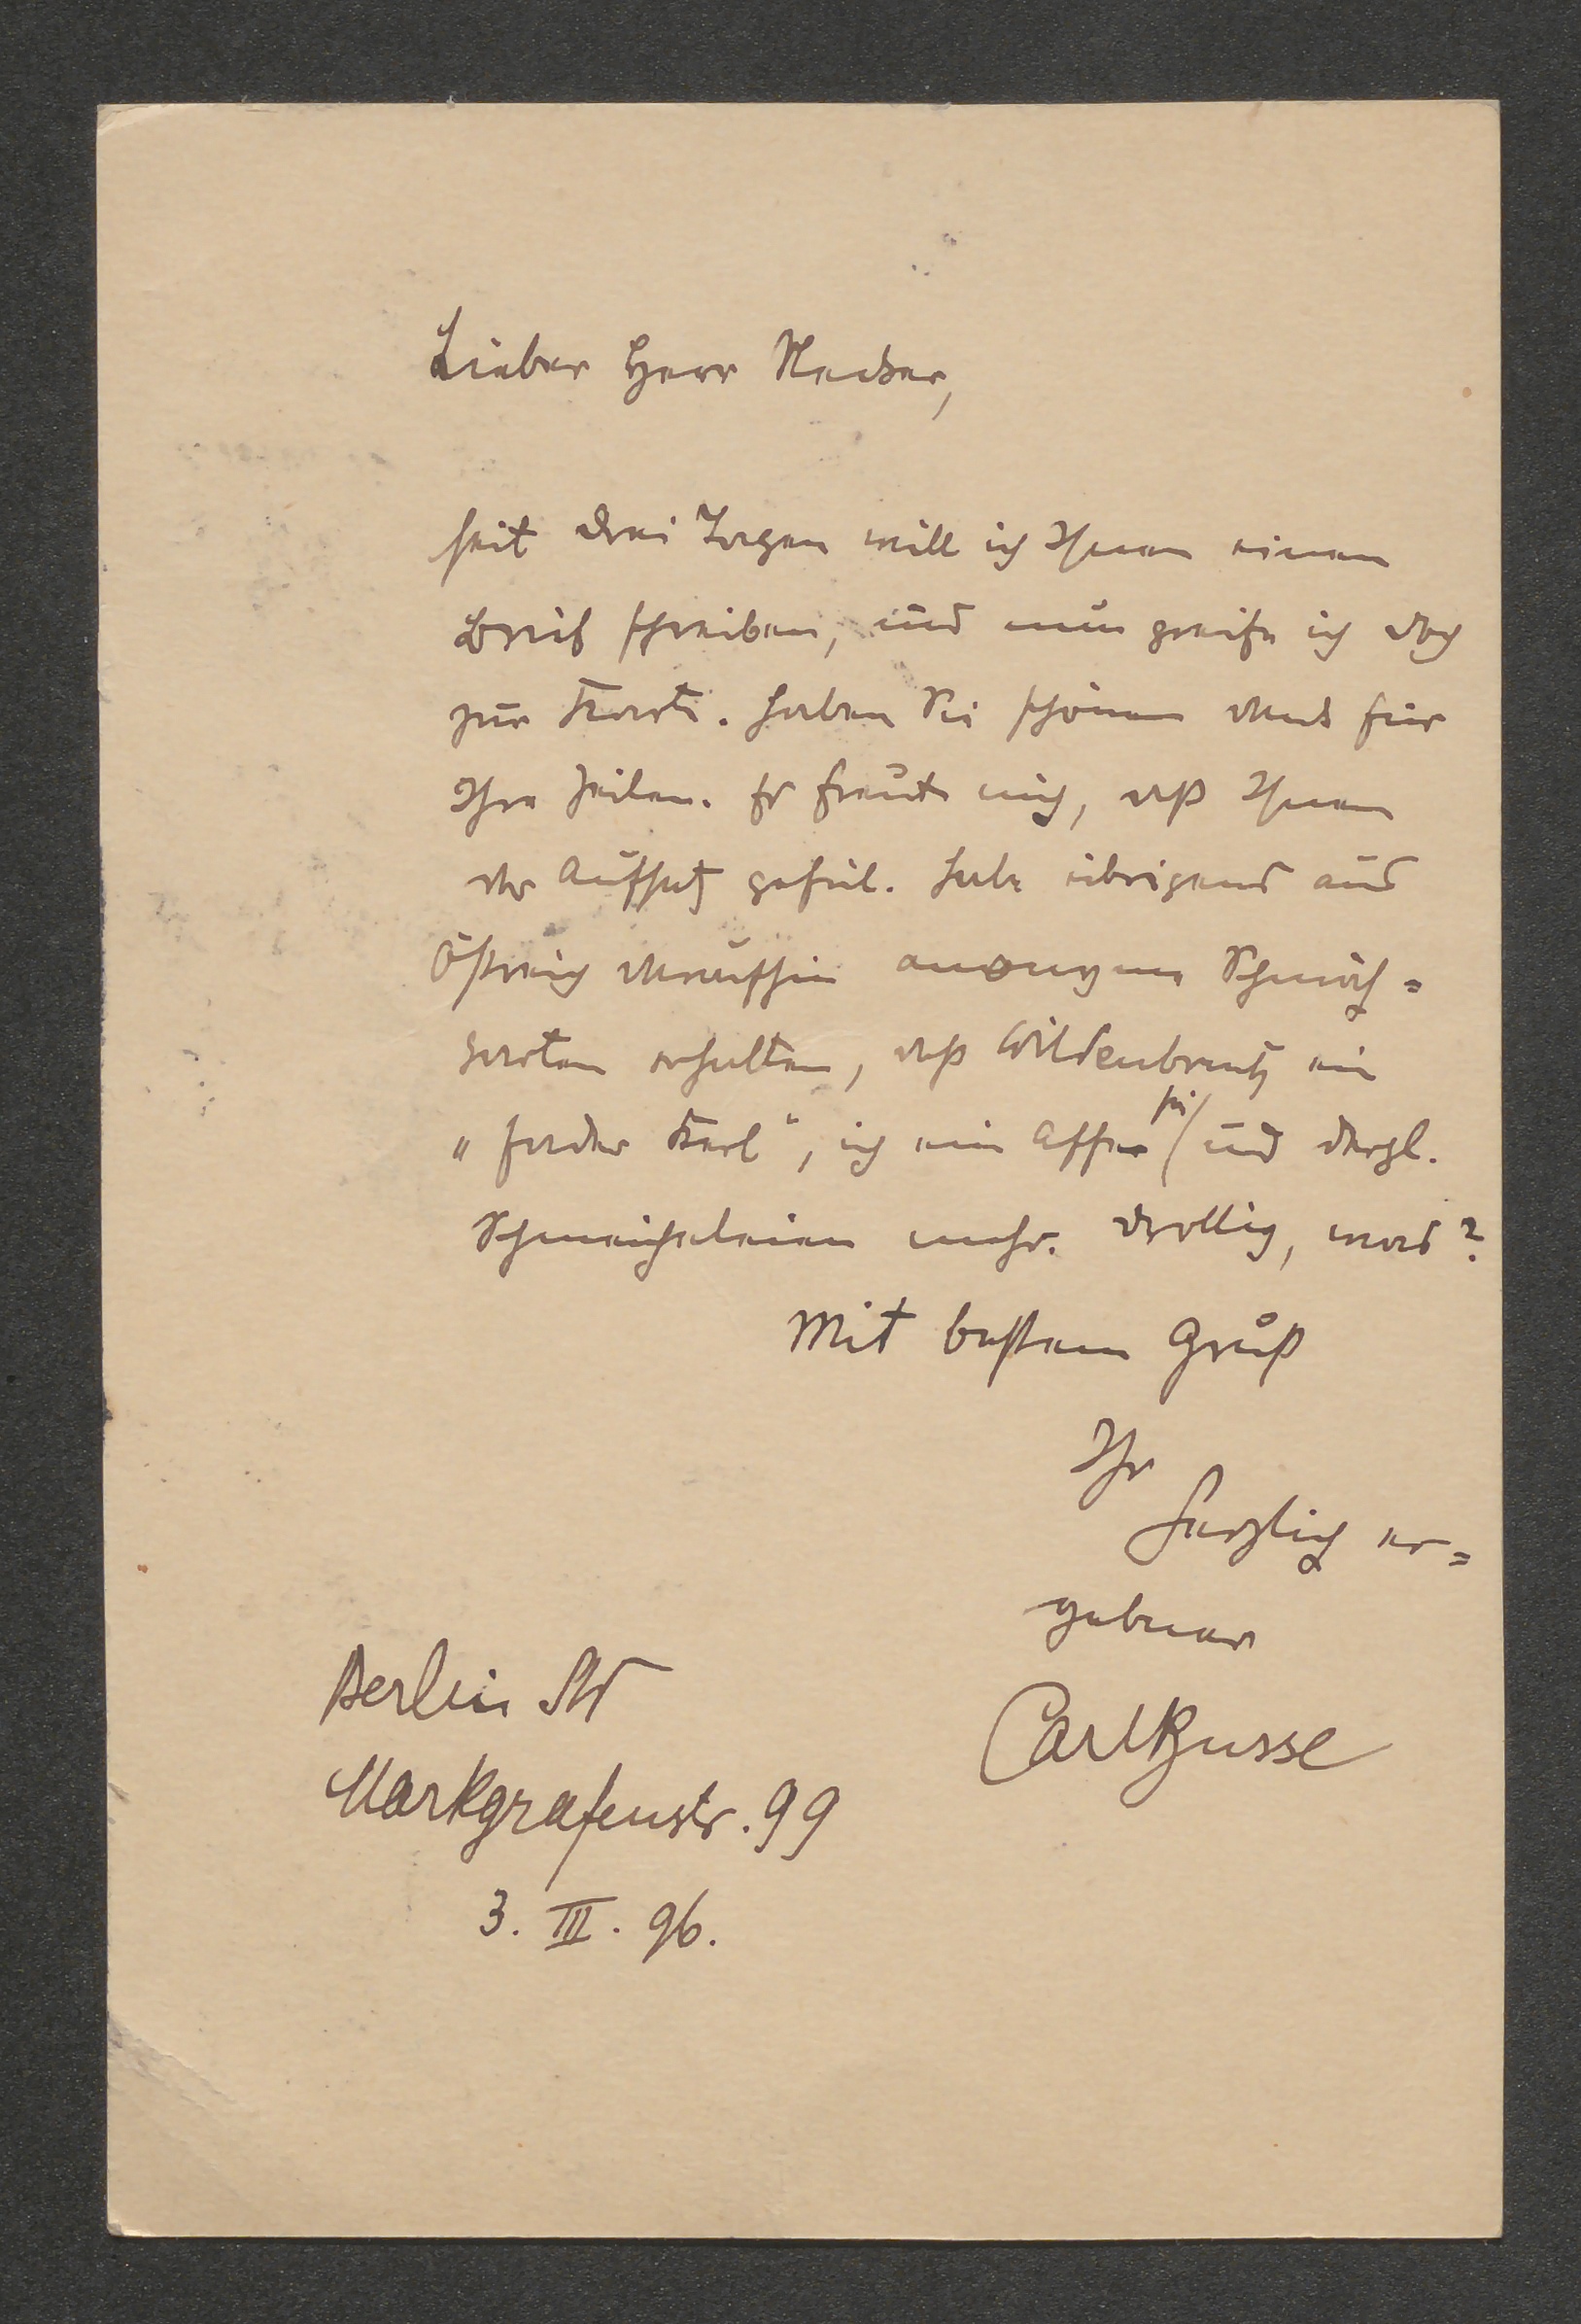 Lieber Herr Necker,
seit drei Tagen will ich Ihnen einen
Brief schreiben, und nun greife ich doch
zur Karte. Haben Sie schönen Dank für
Ihre Zeilen. Es freut mich, daß Ihnen
der Aufsatz gefiel. Habe übrigens aus
Östreich daraufhin anonyme Schmäh=
karten erhalten, daß Wildenbruch ein
"fader Kerl", ich ein Affe sei und dergl.
Schmeicheleien mehr. Drollig, was?
Mit bestem Gruß
Ihr
herzlich er=
gebener
Carl Busse
Berlin SW
Markgrafenstr. 99
3. III. 96.